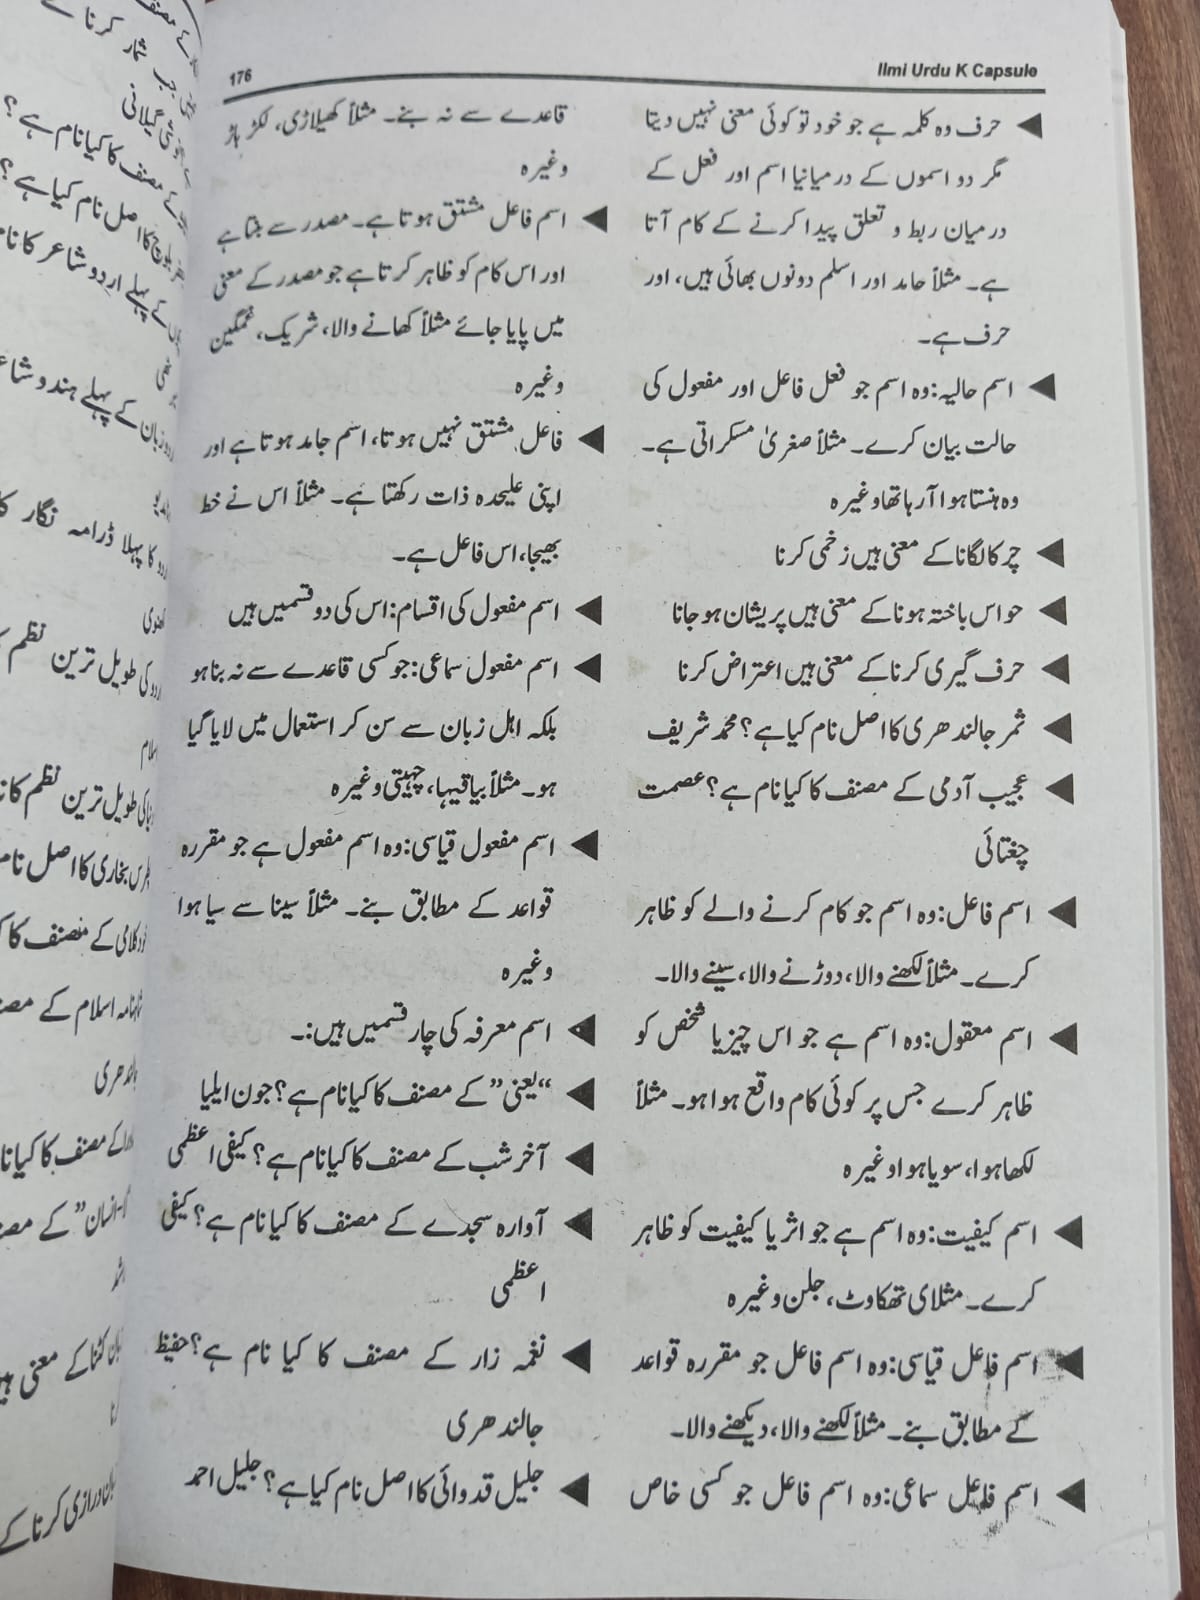 176
Ilmi Urdu K Capsule
حرف وہ کلمہ ہے جو خود تو کوئی معنی نہیں دیتا
مگر دو اسموں کے درمیانیا اسم اور فعل کے
درمیان ربط و تعلق پیدا کرنے کے کام آتا
ہے۔ مثلاً حامد اور اسلم دونوں بھائی ہیں، اور
حرف ہے۔
اسم حالیہ: وہ اسم جو فعل فاعل اور مفعول کی
حالت بیان کرے۔ مثلاً صغریٰ مسکراتی ہے۔
وہ ہنستا ہوا آرہا تھا وغیرہ
چرکا لگانا کے معنی ہیں زخمی کرنا
حواس باختہ ہونا کے معنی ہیں پریشان ہو جانا
حرف گیری کرنا کے معنی ہیں اعتراض کرنا
ثمر جالندھری کا اصل نام کیا ہے؟ محمد شریف
عجیب آدمی کے مصنف کا کیا نام ہے؟ عصمت
چغتائی
اسم فاعل: وہ اسم جو کام کرنے والے کو ظاہر
کرے۔ مثلاً لکھنے والا، دوڑنے والا، سینے والا۔
اسم معقول: وہ اسم ہے جو اس چیز یا شخص کو
ظاہر کرے جس پر کوئی کام واقع ہوا ہو۔ مثلاً
لکھا ہوا، سویا ہوا وغیرہ
اسم کیفیت: وہ اسم ہے جو اثر یا کیفیت کو ظاہر
کرے۔ مثلای تھکاوٹ، جلن وغیرہ
اسم فاعل قیاسی: وہ اسم فاعل جو مقررہ قواعد
کے مطابق بنے۔ مثلاً لکھنے والا، دیکھنے والا۔
اسم فاعل سماعی: وہ اسم فاعل جو کسی خاص
قاعدے سے نہ بنے۔ مثلاً کھیلاڑی، لکڑ ہاڑ
وغیرہ
اسم فاعل مشتق ہوتا ہے۔ مصدر سے بنتا ہے
اور اس کام کو ظاہر کرتا ہے جو مصدر کے معنی
میں پایا جائے مثلاً کھانے والا، شریک، غمگین
وغیرہ
فاعل مشتق نہیں ہوتا، اسم جامد ہوتا ہے اور
اپنی علیحدہ ذات رکھتا ہے۔ مثلاً اس نے خط
بھیجا، اس فاعل ہے۔
اسم مفعول کی اقسام: اس کی دو قسمیں ہیں
اسم مفعول سماعی: جو کسی قاعدے سے نہ بنا ہو
بلکہ اہل زبان سے سن کر استعمال میں لایا گیا
ہو۔ مثلاً بیاقیہا، چہیتی وغیرہ
اسم مفعول قیاسی: وہ اسم مفعول ہے جو مقررہ
قواعد کے مطابق بنے۔ مثلاً سینا سے سیا ہوا
وغیرہ
اسم معرفہ کی چار قسمیں ہیں:۔
“یعنی” کے مصنف کا کیا نام ہے؟ جون ایلیا
آخر شب کے مصنف کا کیا نام ہے؟ کیفی اعظمی
آوارہ سجدے کے مصنف کا کیا نام ہے؟ کیفی
اعظمی
نغمہ زار کے مصنف کا کیا نام ہے؟ حفیظ
جالندھری
جلیل قدوائی کا اصل نام کیا ہے؟ جلیل احمد